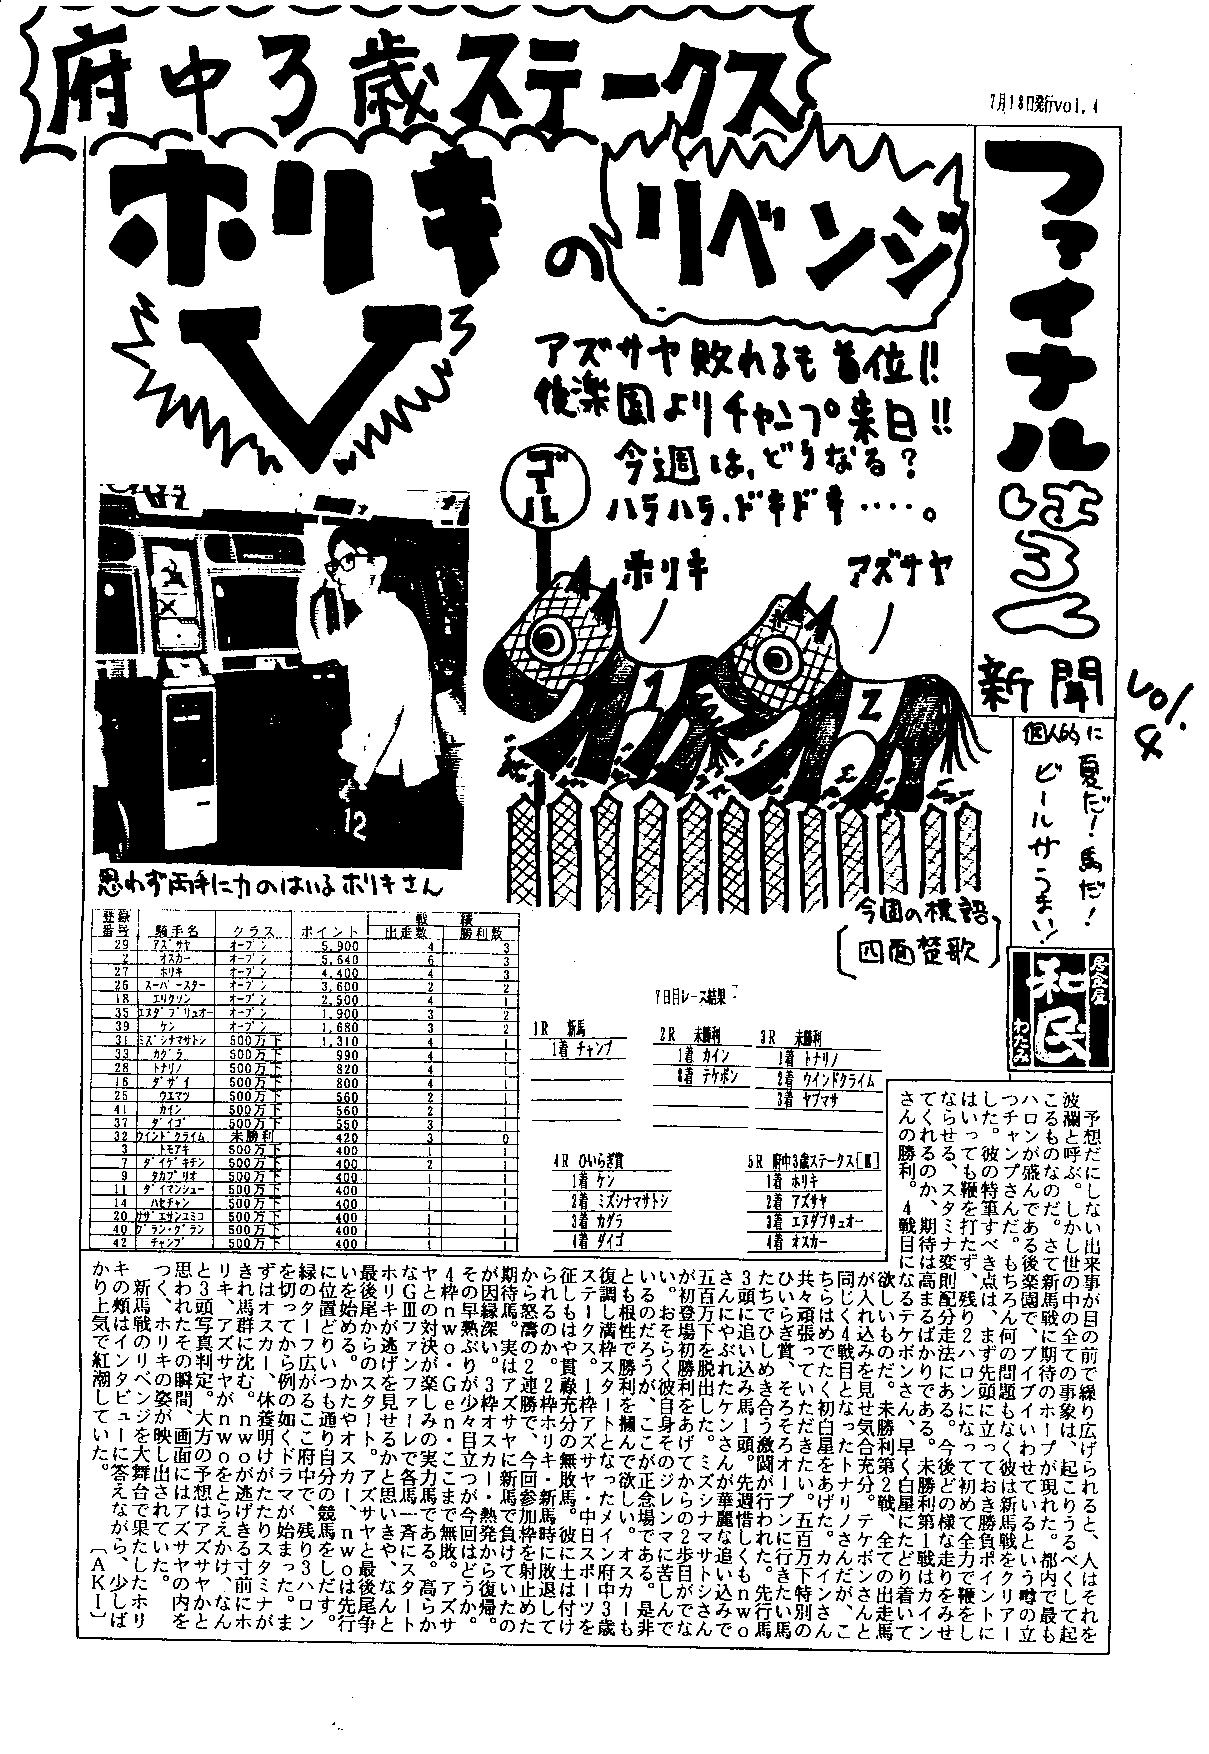 府中3歳ステークス
7月18日発行vol.4
ファイナルはろん
新聞
vol.4
ホリキ
の
リベンジ
V3
アズサヤ敗れるも首位!!
後楽園よりチャンプ来日!!
今週は,どうなる?
ハラハラ,ドキドキ‥‥。
ゴール
ホリキ
アズサヤ
1
2
12
思わず両手に力のはいるホリキさん
今回の標語
[四面楚歌]
夏だ!馬だ!
個人的に
ビールがうまい!
居食屋
和民
わたみ
登録番号 騎手名 クラス ポイント 戦績 出走数 勝利数
29 アズサヤ オープン 5,900 4 3
2 オスカー オープン 5,640 6 3
27 ホリキ オープン 4,400 4 3
26 スーパースター オープン 3,600 2 2
18 エリクソン オープン 2,500 4 1
35 エヌダブリュオー オープン 1,900 3 2
39 ケン オープン 1,680 3 2
31 ミズシナマサトシ 500万下 1,310 4 1
33 カグラ 500万下 990 4 1
28 トナリノ 500万下 820 4 1
16 ダザイ 500万下 800 4 1
25 ウエマツ 500万下 560 2 1
41 カイン 500万下 560 2 1
37 ダイゴ 500万下 550 3 1
32 ウインドクライム 未勝利 420 3 0
3 トモアキ 500万下 400 1 1
7 ダイデキチン 500万下 400 2 1
9 タカブリオ 500万下 400 1 1
11 ダイマンシュー 500万下 400 1 1
14 ハセチャン 500万下 400 1 1
20 サザエサンエミコ 500万下 400 1 1
40 グラン・グラン 500万下 400 1 1
42 チャンプ 500万下 400 1 1
7日目レース結果
1R 新馬
1着 チャンプ
2R 未勝利
1着 カイン
8着 テケポン
3R 未勝利
1着 トナリノ
2着 ウインドクライム
3着 ヤブマサ
4R ひいらぎ賞
1着 ケン
2着 ミズシナマサトシ
3着 カグラ
4着 ダイゴ
5R 府中3歳ステークス[Ⅲ]
1着 ホリキ
2着 アズサヤ
3着 エヌダブリュオー
4着 オスカー
予想だにしない出来事が目の前で繰り広げられると、人はそれを
波瀾と呼ぶ。しかし世の中の全ての事象は、起こりうるべくして起
こるものなのだ。さて新馬戦に期待のホープが現れた。都内で最も
ハロンが盛んである後楽園で、ブイブイいわせているという噂の立
つチャンプさんだ。もちろん何の問題もなく彼は新馬戦をクリアー
した。彼の特筆すべき点は、まず先頭に立っておき勝負ポイントに
はいっても鞭を打たず、残り2ハロンになって初めて全力で鞭をし
ならせる、スタミナ変則配分走法にある。今後どの様な走りをみせ
てくれるのか、期待は高まるばかりである。未勝利第1戦はカイン
さんの勝利。4戦目になるテケポンさん、早く白星にたどり着いて
欲しいものだ。未勝利第2戦、全ての出走馬
が入れ込みを見せ気合充分。テケポンさんと
同じく4戦目となったトナリノさんだが、こ
ちらはめでたく初白星をあげた。カインさん
共々頑張っていただきたい。五百万下特別の
ひいらぎ賞、そろそろオープンに行きたい馬
たちでひしめき合う激闘が行われた。先行馬
3頭に追い込み馬1頭。先週惜しくもnwo
さんにやぶれたケンさんが華麗な追い込みで
五百万下を脱出した。ミズシナマサトシさん
が初登場初勝利をあげてからの2歩目がでな
い。おそらく彼自身そのジレンマに苦しんで
いるのだろうが、ここが正念場である。是非
とも根性で勝利を摑んで欲しい。オスカーも
復調し満枠スタートとなったメイン府中3歳
ステークス。1枠アズサヤ・中日スポーツを
征しもはや貫禄充分の無敗馬。彼に土は付け
られるのか。2枠ホリキ・新馬時に敗退して
から怒濤の2連勝で、今回参加枠を射止めた
期待馬。実はアズサヤに新馬で負けていたの
が因縁深い。3枠オスカー・熱発から復帰。
その早熟ぶりが少々目立つが今回はどうか。
4枠nwo・Gen・ここまで無敗。アズサ
ヤとの対決が楽しみの実力馬である。高らか
なGⅢファンファーレで各馬一斉にスタート
ホリキが逃げを見せるかと思いきや、なんと
最後尾からのスタート。アズサヤと最後尾争
いを始める。かたやオスカー、nwoは先行
に位置どりいつも通り自分の競馬をしだす。
緑のターフ広がるここ府中で、残り3ハロン
を切ってから例の如くドラマが始まった。ま
ずはオスカー、休養明けがたたりスタミナが
きれ馬群に沈む。nwoが逃げきる寸前にホ
リキ、アズサヤがnwoをとらえかけ、なん
と3頭写真判定。大方の予想はアズサヤかと
思われたその瞬間、画面にはアズサヤの内を
つく、ホリキの姿が映し出されていた。
新馬戦のリベンジを大舞台で果たしたホリ
キの頬はインタビューに答えながら、少しば
かり上気で紅潮していた。
〔AKI〕